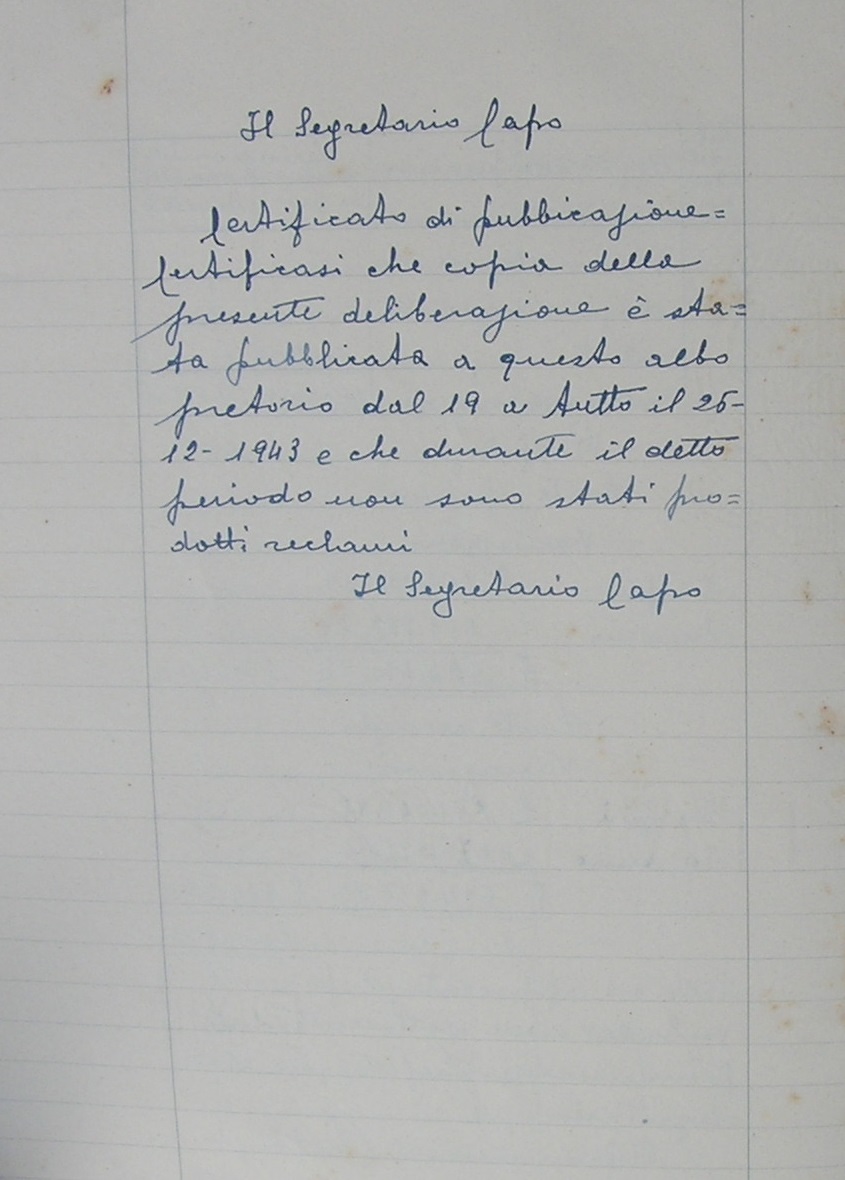 Il Segretario Capo
Certificato di pubbicazione=
Certificasi che copia della
presente deliberazione è sta=
ta pubblicata a questo albo
pretorio dal 19 a tutto il 26-
12-1943 e che durante il detto
periodo non sono stati pro=
dotti reclami
Il Segretario Capo